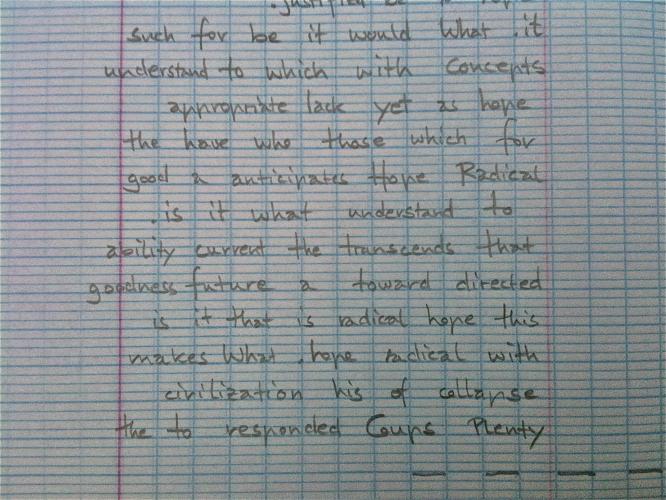 .justified be to hope
such for be it would What .it
understand to which with concepts
appropriate lack yet as hope
the have who those which for
good a anticipates Hope Radical
.is it what understand to
ability current the transcends that
goodness future a toward directed
is it that is radical hope this
makes What .hope radical with
civilization his of collapse
the to responded Coups Plenty